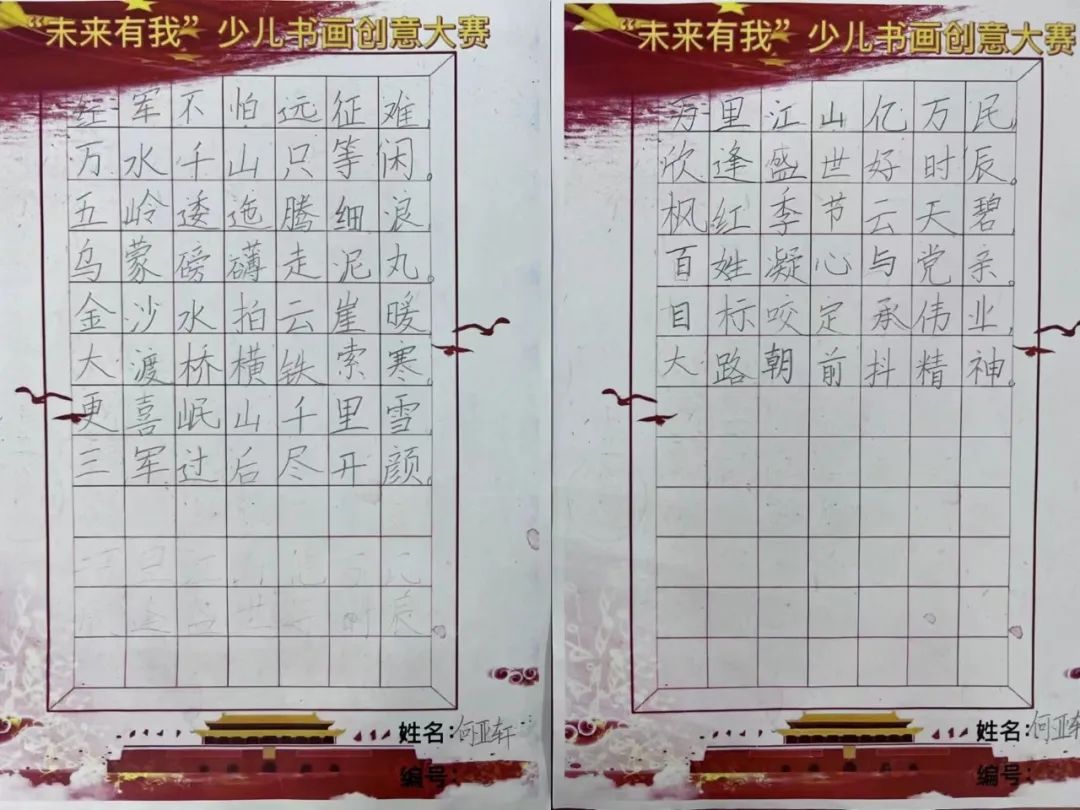 “未来有我” 少儿书画创意大赛
红军不怕远征难
万水千山只等闲。
五岭逶迤腾细浪
乌蒙磅礴走泥丸。
金沙水拍云崖暖
大渡桥横铁索寒。
更喜岷山千里雪
三军过后尽开颜。
姓名:何亚轩
编号:
“未来有我” 少儿书画创意大赛
万里江山亿万民
欣逢盛世好时辰。
枫红季节云天碧
百姓凝心与党亲。
目标咬定承伟业
大路朝前抖精神。
姓名:何亚轩
编号: